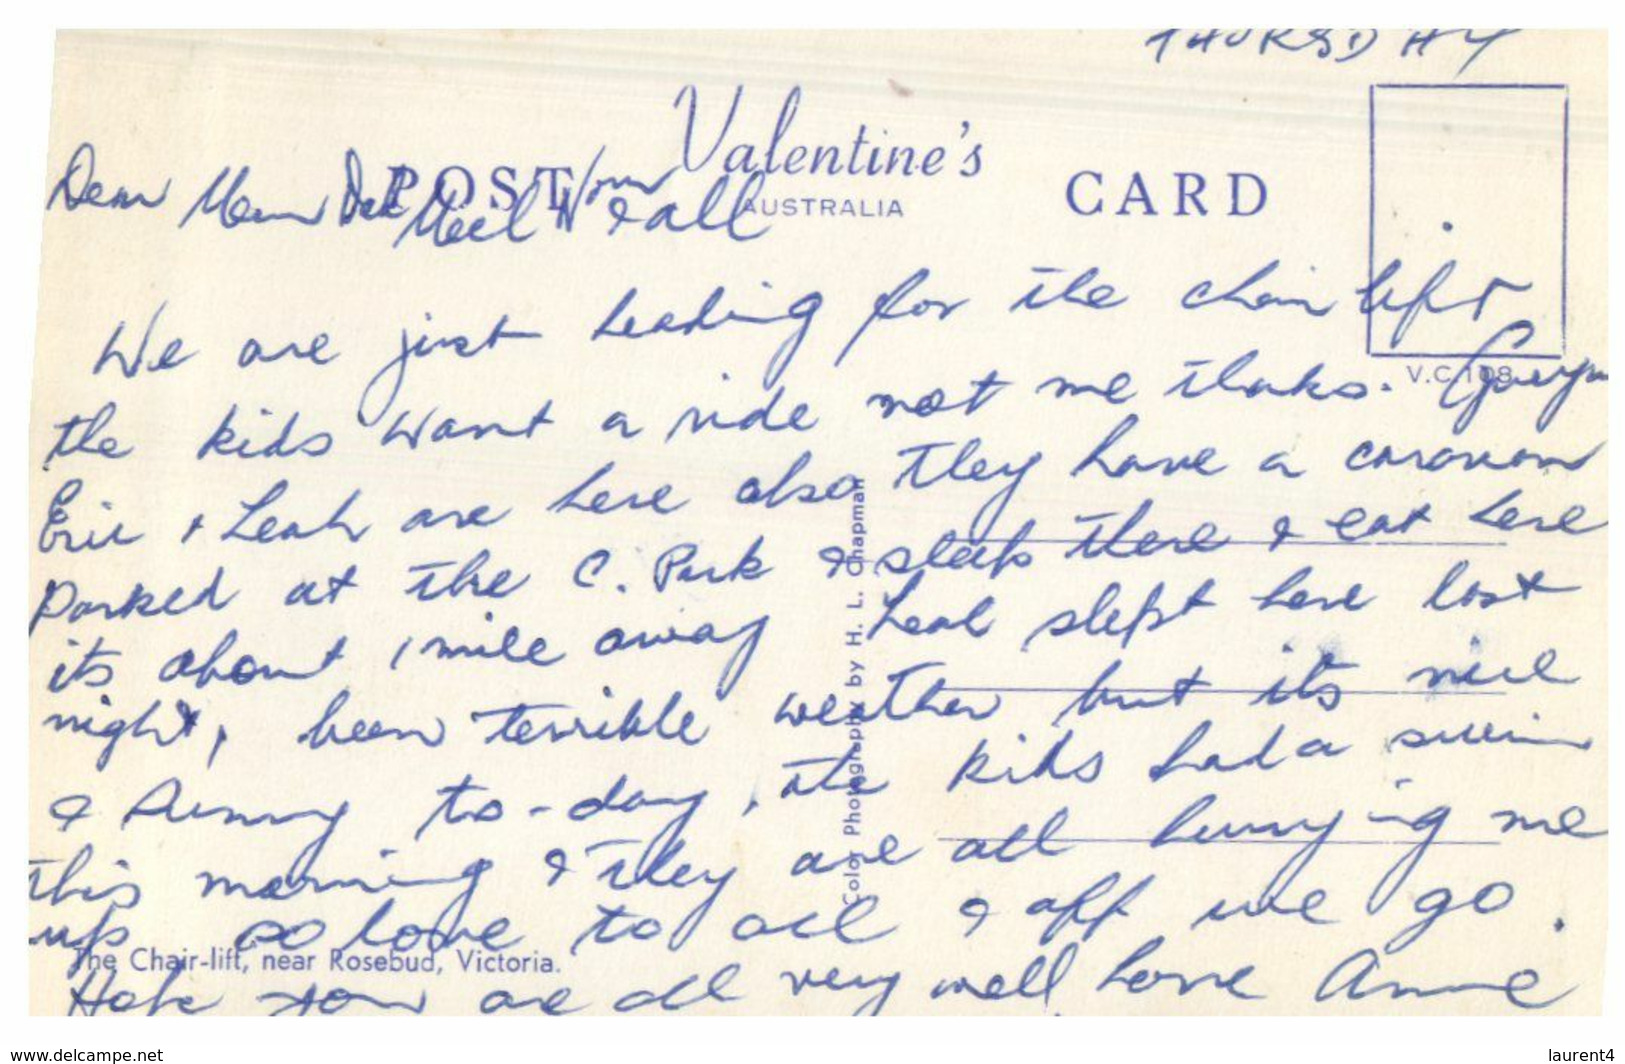 THURSDAY
Valentine's
POST CARD
AUSTRALIA
Dear Mum Dad & all
We are just heading for the chair lift
V.C.198
the kids want a ride not me thanks.
Eric & Leah are here also they have a caravan
parked at the C. Park & sleep there & eat here
its about 1 mile away Leah slept here last
night, been terrible weather but its nice
& sunny to-day, the kids had a swim
this morning & they are all hurrying me
up so love to all & off we go.
Hope you are all very well love Anne
The Chair-lift, near Rosebud, Victoria.
Color Photography by H. L. Chapman
www.delcampe.net
laurent4